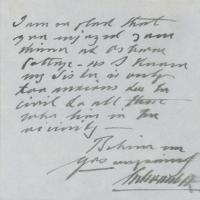 I am so glad that
you enjoyed your
dinner at
Cottage – as I know
my Sister is only
too anxious to be
civil to all those
who live in the
vicinity –
Believe me
Yrs